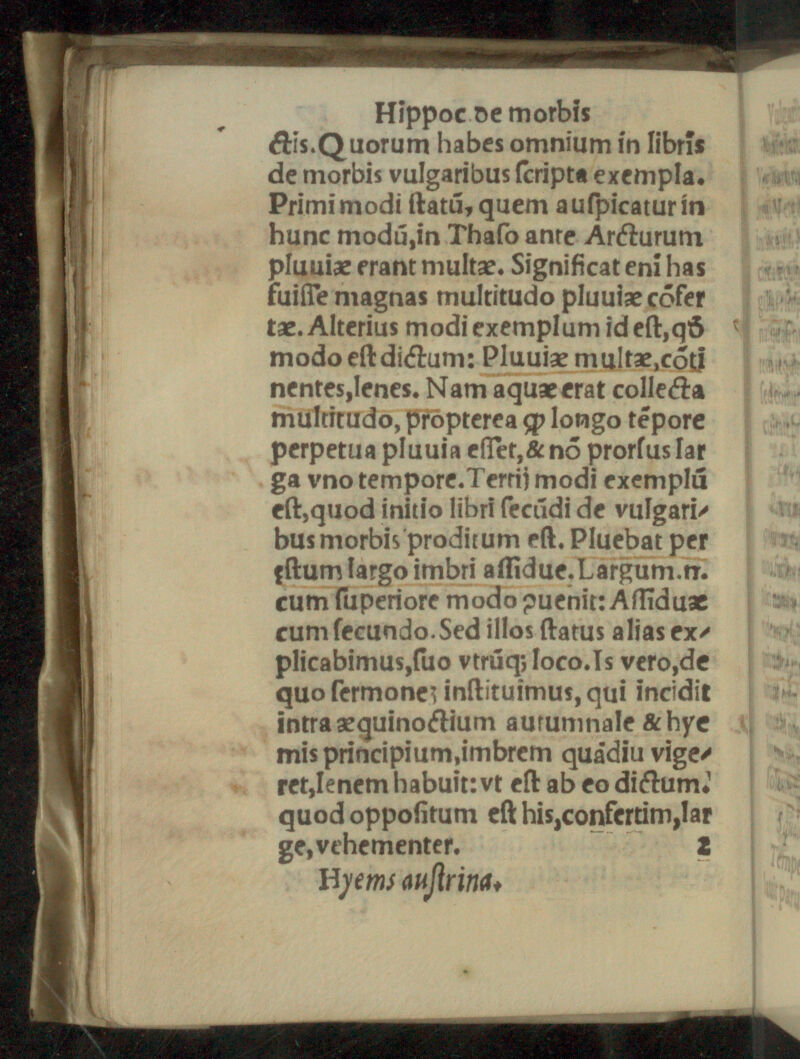 Hippoc de morbis
ctis. Quorum habes omnium in libris
de morbis vulgaribus ſcripta exempla.
Primi modi ſtatū, quem auſpicatur in
hunc modū, in Thaſo ante Arcturum
pluuiæ erant multæ. Significat eni has
fuiſſe magnas multitudo pluuiæ cōfer
tæ. Alterius modi exemplum id eſt, qď
modo eſt dictum: Pluuiæ multæ, cōti
nentes, lenes. Nam aquæ erat collecta
multitudo, propterea ꝙ longo tēpore
perpetua pluuia eſſet, & nō prorſus lar
ga vno tempore. Tertij modi exemplū
eſt, quod initio libri ſecūdi de vulgari⸗
bus morbis proditum eſt. Pluebat per
ęſtum largo imbri aſſidue. Largum.n.
cum ſuperiore modo ꝯuenit: Aſſiduæ
cum ſecundo. Sed illos ſtatus alias ex⸗
plicabimus, ſuo vtrūq; loco. Is vero, de
quo ſermonē inſtituimus, qui incidit
intra æquinoctium autumnale & hye
mis principium, imbrem quádiu vige⸗
ret, lenem habuit: vt eſt ab eo dictum:
quod oppoſitum eſt his, confertim, lar
ge, vehementer. 2
Hyems auſtrina.